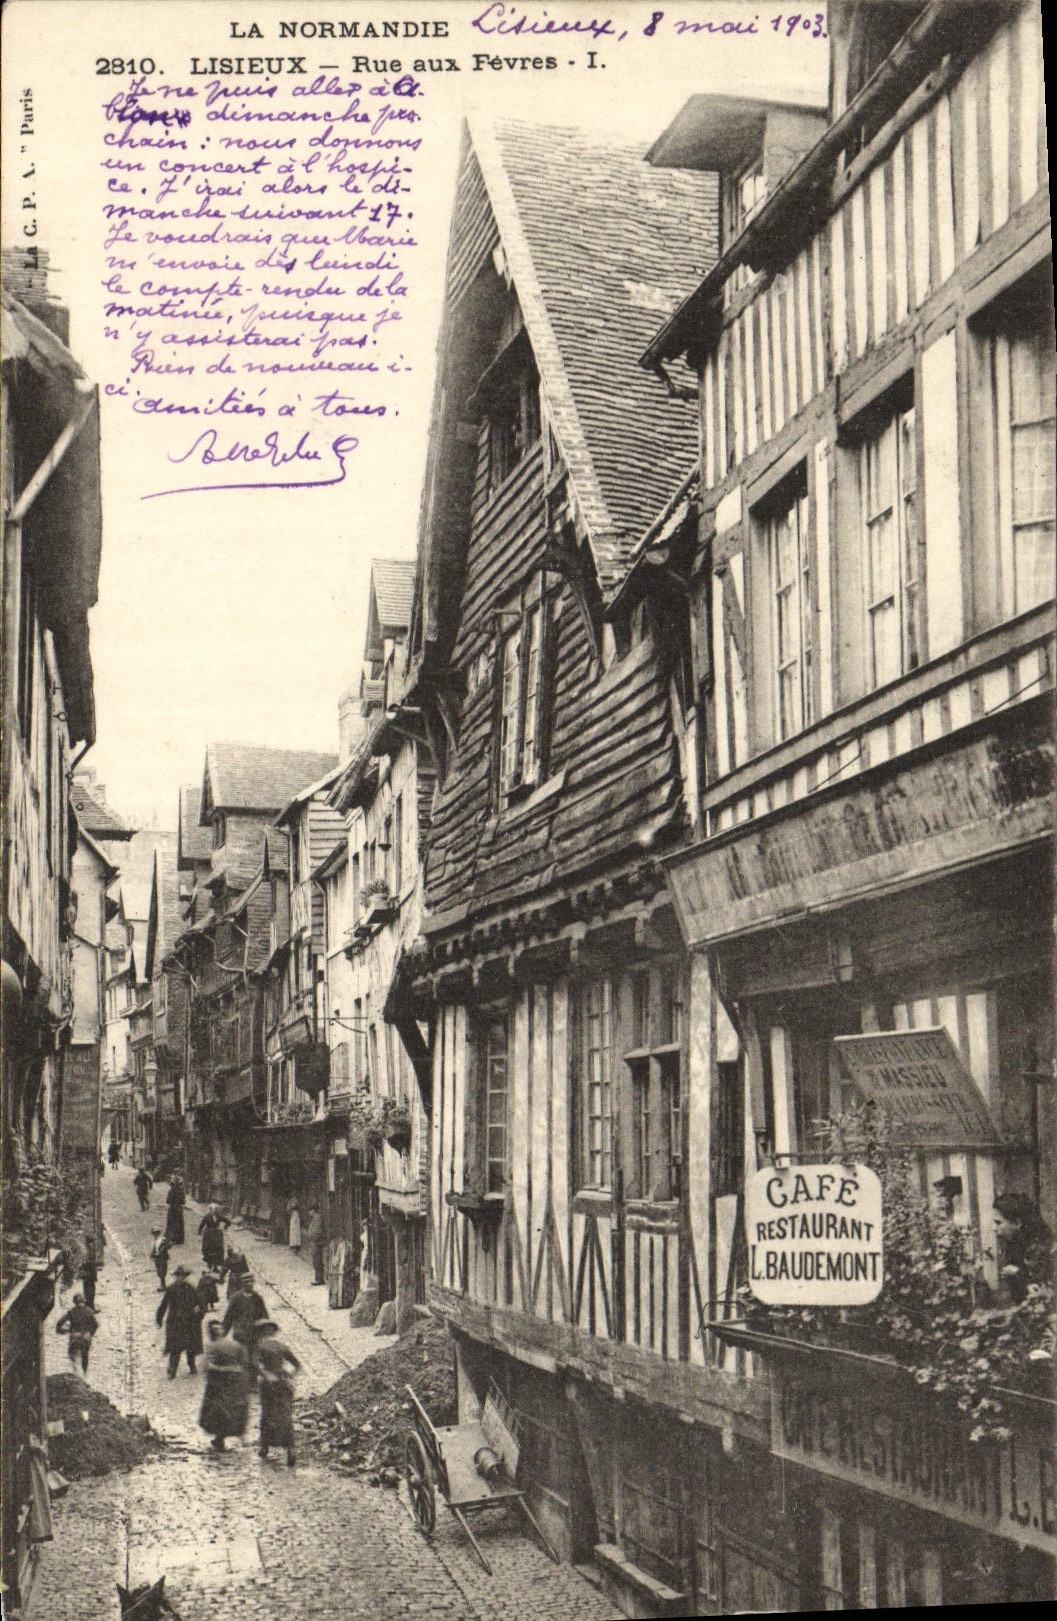 LA NORMANDIE
Lisieux, 8 mai 1903.
2810. LISIEUX — Rue aux Fèvres - I.
Je ne puis aller à
dimanche pro-
chain : nous donnons
un concert à l'hospi-
ce. J'irai alors le di-
manche suivant 17.
Je voudrais que Marie
m'envoie dès lundi
le compte-rendu de la
matinée, puisque je
n'y assisterai pas.
Rien de nouveau i-
ci.
Amitiés à tous.
"La C. P. A." Paris
MASSIEU
CAFÉ
RESTAURANT
L. BAUDEMONT
RESTAURANT L. B